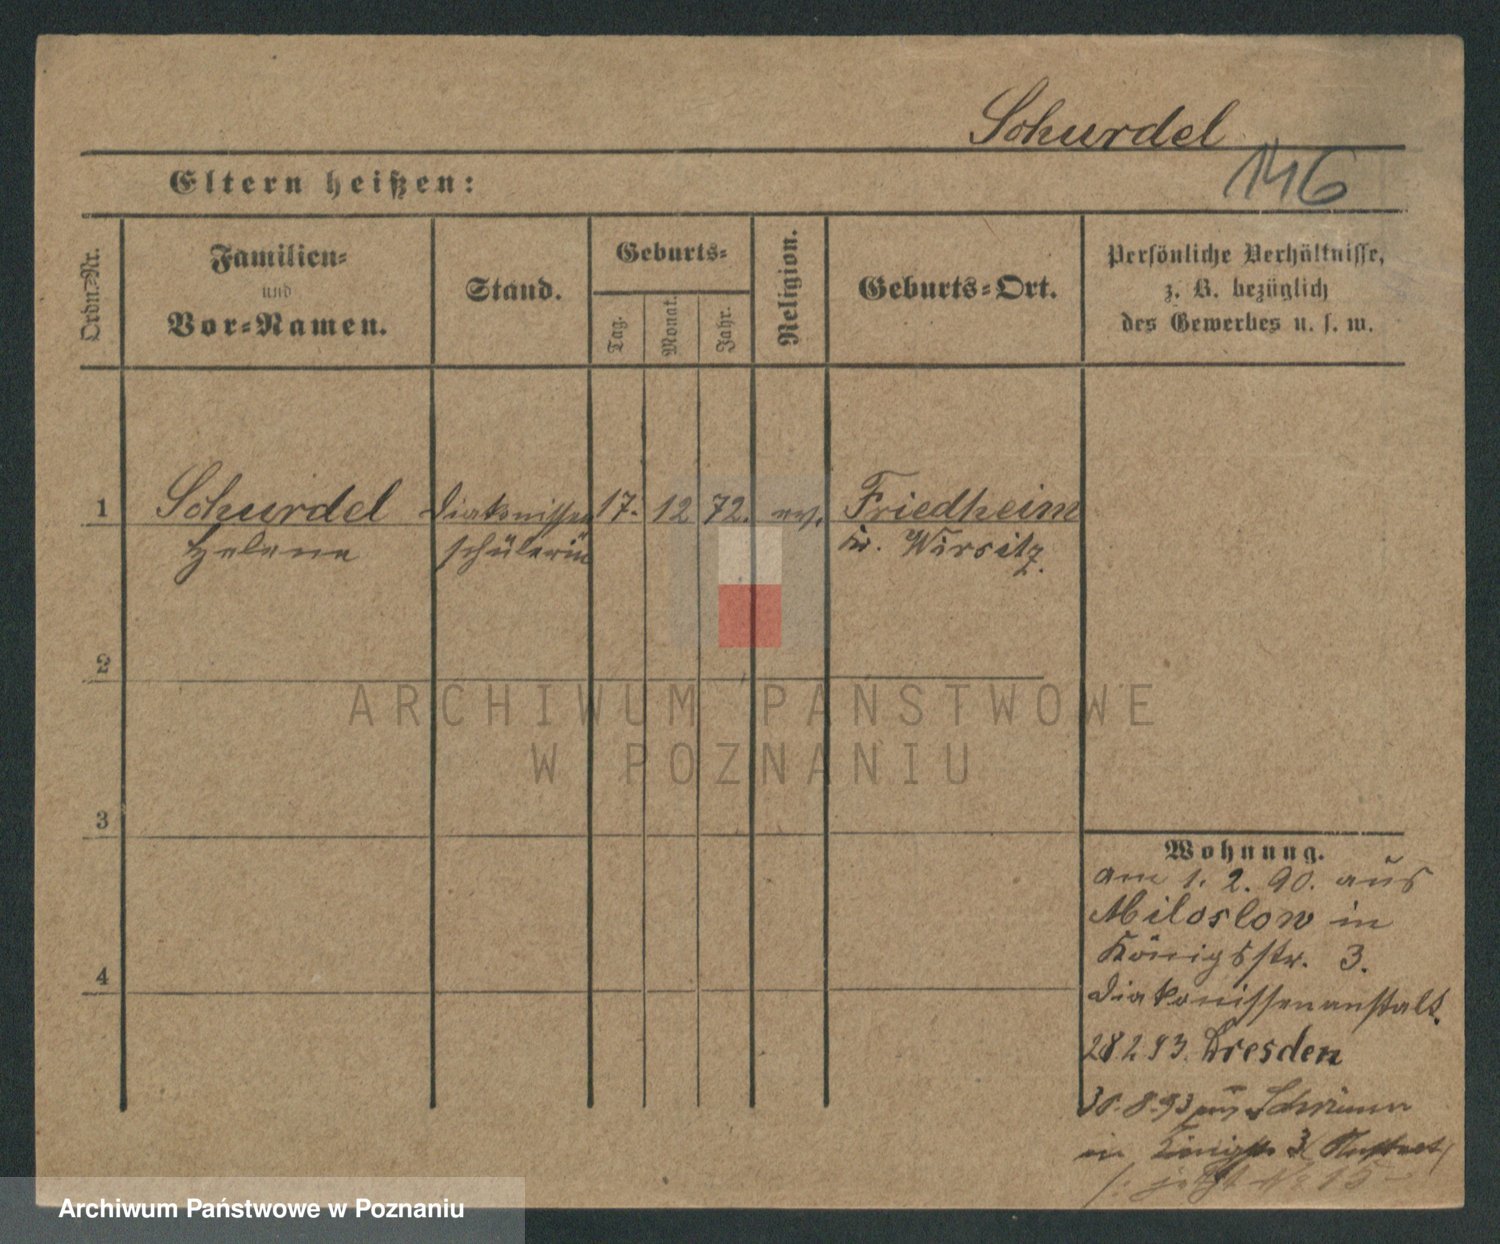 Schurdel
146
Eltern heißen:
Ordn.-Nr.
Familien-
und
Vor-Namen.
Stand.
Geburts-
Tag.
Monat.
Jahr.
Religion.
Geburts-Ort.
Persönliche Verhältnisse,
z. B. bezüglich
des Gewerbes u. s. w.
1 Schurdel Diakonissen 17. 12 72. ev. Friedheim
Helene schülerin Kr. Wirsitz.
2
ARCHIWUM PAŃSTWOWE
W POZNANIU
3
Wohnung.
am 1. 2. 90. aus
Miloslow in
Königsstr. 3.
4
Diakonissenanstalt.
28 2 93. Dresden
30. 8. 93 aus
in Königstr 3
jetzt No 15
Archiwum Państwowe w Poznaniu